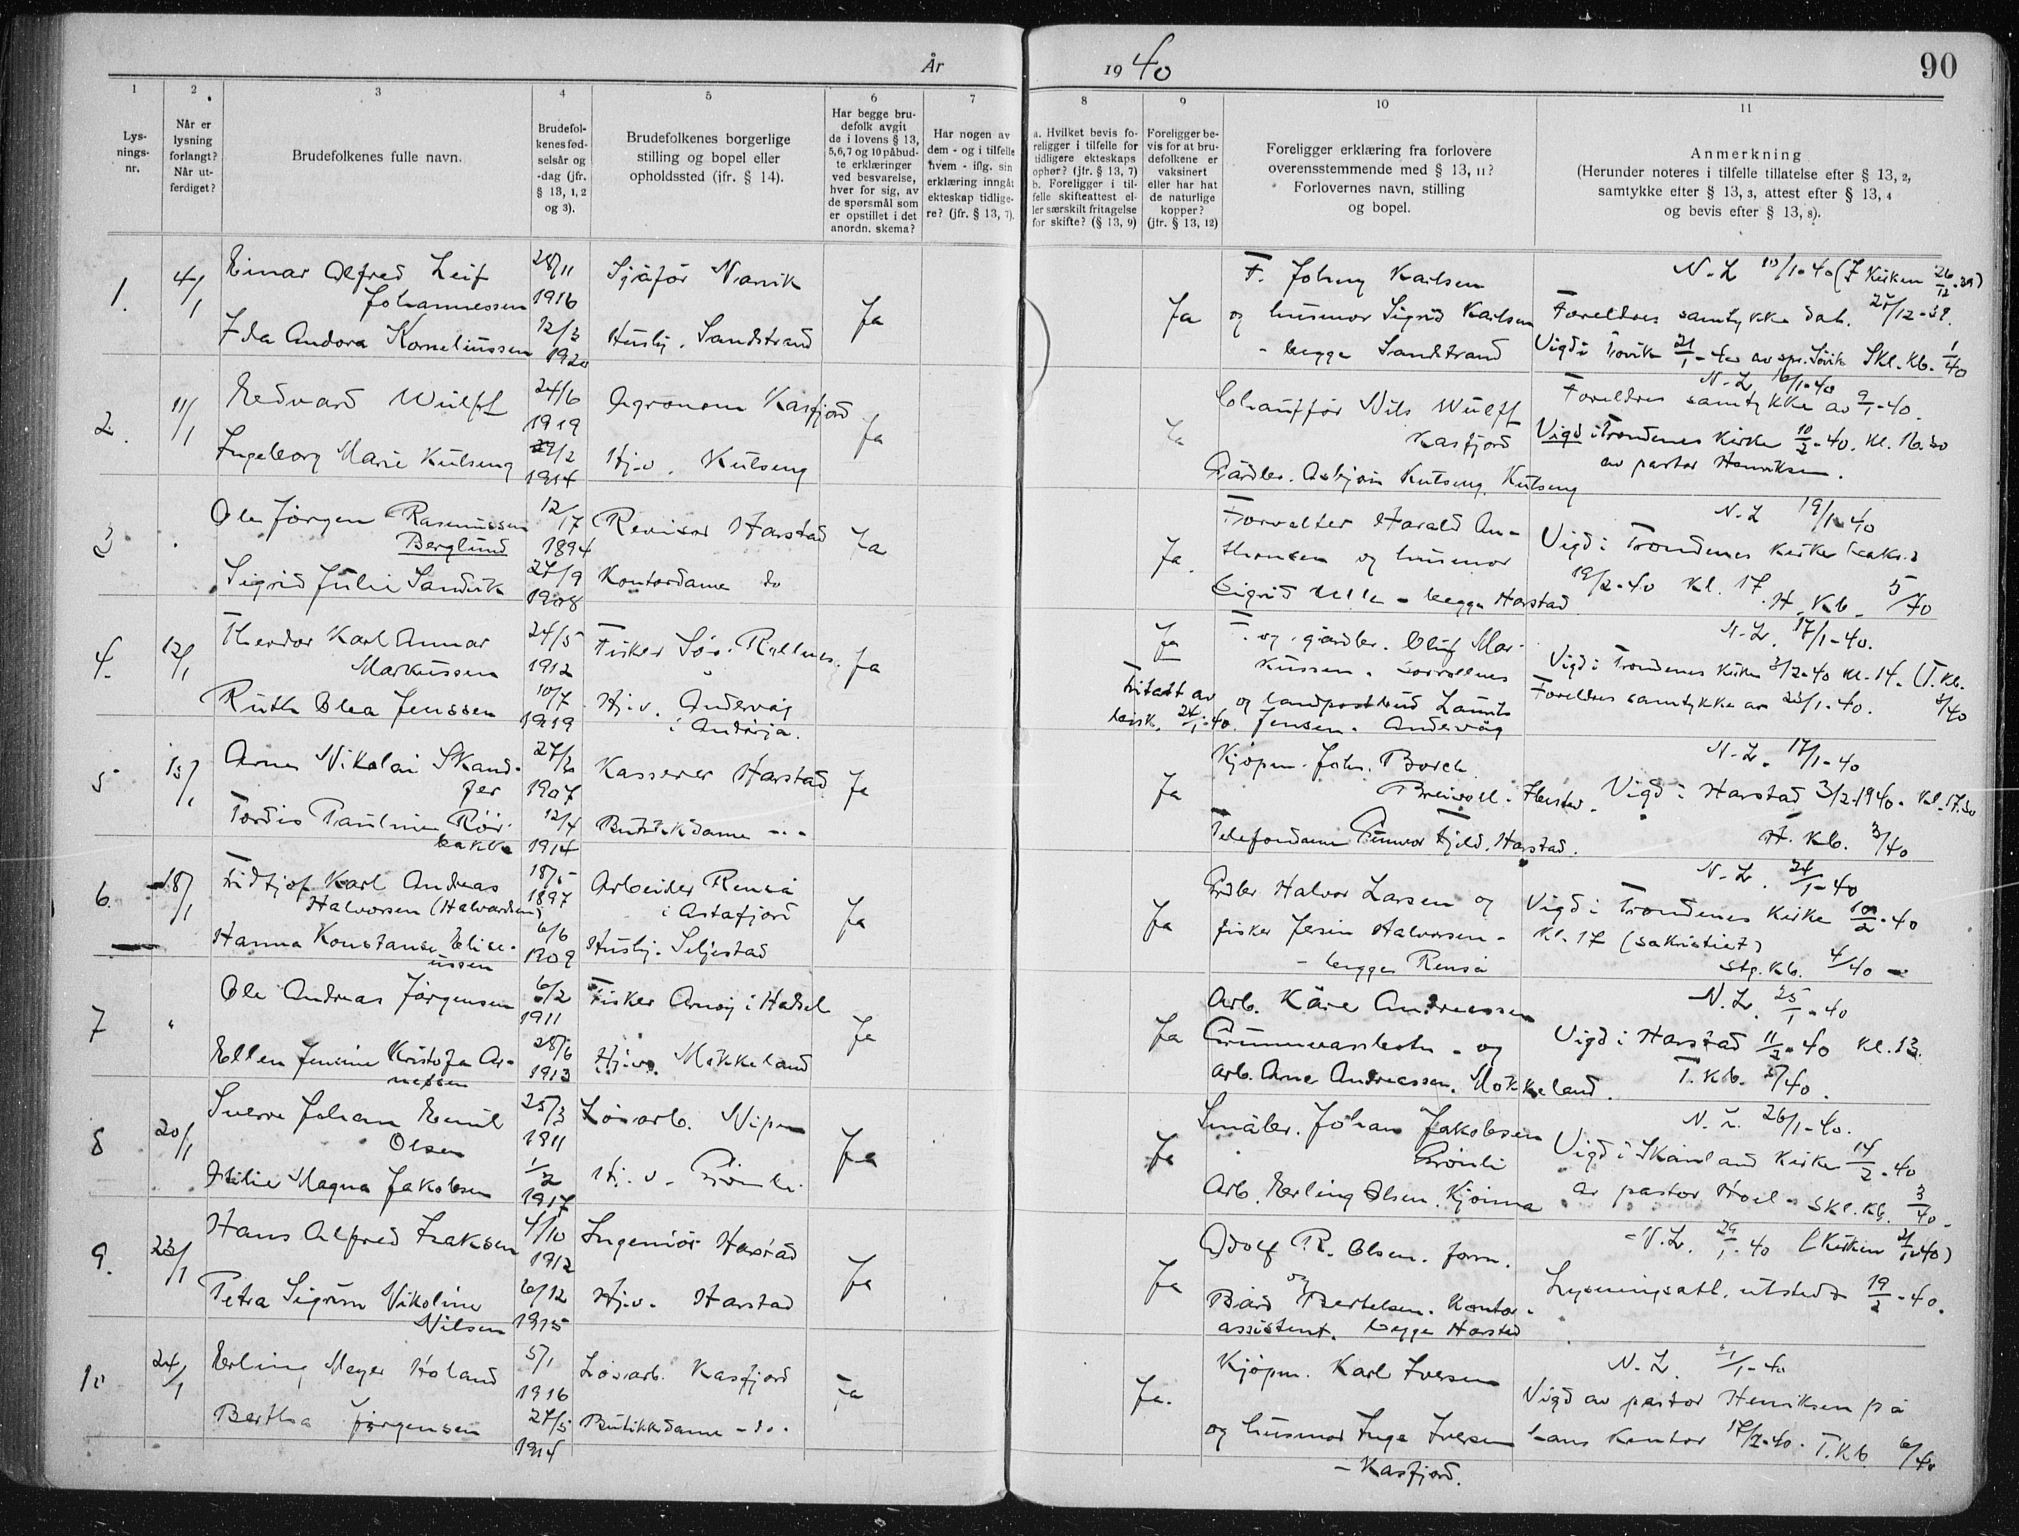 År 1940
90
1 2 3 4 5 6 7 8 9 10 11
Lys-
nings-
nr.
Når er
lysning
forlangt?
Når ut-
ferdiget?
Brudefolkenes fulle navn.
Brudefol-
kenes fød-
selsår og
-dag (jfr.
§ 13, 1, 2
og 3).
Brudefolkenes borgerlige
stilling og bopel eller
opholdssted (jfr. § 14).
Har begge bru-
defolk avgit
de i lovens § 13,
5, 6, 7 og 10 påbud-
te erklæringer
ved besvarelse,
hver for sig, av
de spørsmål som
er opstillet i det
anordn. skema?
Har nogen av
dem - og i tilfelle
hvem - iflg. sin
erklæring inngåt
ekteskap tidlige-
re? (jfr. § 13, 7).
a. Hvilket bevis fo-
religger i tilfelle for
tidligere ekteskaps
ophør? (jfr. § 13, 7)
b. Foreligger i til-
felle skifteattest el-
ler særskilt fritagelse
for skifte? (§ 13, 9)
Foreligger be-
vis for at bru-
defolkene er
vaksinert
eller har hat
de naturlige
kopper?
(jfr. § 13, 12)
Foreligger erklæring fra forlovere
overensstemmende med § 13, 11?
Forlovernes navn, stilling
og bopel.
Anmerkning
(Herunder noteres i tilfelle tillatelse efter § 13, 2,
samtykke efter § 13, 3, attest efter § 13, 4
og bevis efter § 13, 8).
1. 4/1 Einar Alfred Leif
Johannessen
28/11
1916
Sjåfør Narvik
Ida Andora Korneliussen
12/3
1920
Husbj. Sandstrand
Ja
Ja
F. Johny Karlsen
og husmor Sigrid Karlsen
- begge Sandstrand
N.L. 10/1-40 (I Kirken 26/12-39)
Foreldres samtykke dat. 28/12-39.
Vigd i Trovik 21/1-40 av spr. Søvik Skl. Kb. 1/40
2. 11/1 Edvard Wulff
24/6
1919
Agronom Kasfjord
Ingeborg Marie Kulseng
29/2
1914
Hj.v. Kulseng
Ja
Ja
Chauffør Nils Wulff
Kasfjord
Gårdbr. Asbjørn Kulseng. Kulseng
N.L. 16/1-40
Foreldres samtykke av 9/1-40.
Vigd i Trondenes Kirke 10/2-40. Kl. 16.30
av pastor Henriksen.
3 Ole Jørgen Rasmussen
Berglund
12/17
1894
Revisor Harstad
Sigrid Julie Sandvik
27/9
1908
Kontordame do
Ja
Ja.
Forvalter Harald An-
thonsen og husmor
Sigrid Ulle - begge Harstad
N.L 19/1-40
Vigd i Trondenes Kirke
19/2-40 Kl. 17. H. Kb. 5/40
4. 12/1 Theodor Karl Annar
Markussen
24/5
1912
Fisker Sør-Rollnes.
Ruth Olea Jenssen
10/7
1919
Hj.v. Andervåg
i Andørja.
Ja
Ja
Fritatt av
bisk. 24/1-40.
F. og gårdbr. Oluf Mar-
kussen. Sørrollnes
og landpostbud Laurits
Jensen. Andervåg
N.L. 17/1-40.
Vigd i Trondenes Kirke 3/2-40 Kl. 14. (T. Kb.
Foreldres samtykke av 23/1-40. 3/40
5 15/1 Arne Nikolai Skand-
fer
27/6
1907
Kasserer Harstad
Tordis Pauline Rør-
bakke
12/4
1914
Butikkdame -"-
Ja
Ja
Kjøpm. Johs. Borch
Breivoll. Ibestad.
Telefondame Gunvor Fjeld. Harstad.
N.L. 17/1-40
Vigd i Harstad 3/2-1940. Kl. 17.30
H. Kb. 3/40
6. 18/1 Fridtjof Karl Andreas
Halvorsen (Halvardsen)
18/5-
1897
Arbeider Renså
i Astafjord
Hanna Konstanse Elise-
ussen
6/6
1909
Husbj. Seljestad
Ja
Ja
Gårdbr Halvor Larsen og
fisker Jesin Halvorsen -
- begge Renså
N.L. 24/1-40
Vigd i Trondenes Kirke 10/2-40
Kl. 17 (sakristiet)
Stg. Kb. 4/40 -
7 " Ole Andreas Jørgensen
6/2
1911
Fisker Arnøy i Hadsel
Ellen Jensine Kristofa Ar-
nessen
28/6
1913
Hj.v. Møkkeland
Ja
Ja
Arb. Kåre Andreassen
Grunnvassbotn - og
Arb. Arne Andreassen. Møkkeland.
N.L. 25/1-40
Vigd i Harstad 11/2-40 Kl. 13.
T. Kb. 5/40.
8 20/1 Sverre Johan Emil
Olsen
25/3
1911
Løsarb. Nipen
Magna Jakobsen
1/2
1917
Hj. v. Grønli
Ja
Ja
Småbr. Johan Jakobsen
Grønli
Arb. Erling Olsen. Kjønna
N.L. 26/1-40.
Vigd i Skånland Kirke 14/2-40
av pastor Hoel - Skl. Kb. 3/40.
9. 23/1 Hans Alfred Isaksen
4/10
1912
Ingeniør Harstad
Petra Sigrun Nikoline
Nilsen
6/12
1915
Hj.v. Harstad
Ja
Ja
Adolf R. Olsen. form.
og
Bård Bertelsen. Kontor-
assistent. begge Harstad
N.L. 29/1-40 (Kirken 21/1-40)
Lysningsatt. utstedt 19/2-40.
10 24/1 Erling Meyer Holand
5/1
1916
Løsarb. Kasfjord
Bertha Jørgensen
27/5
1914
Butikkdame - do.
Ja
Ja.
Kjøpm. Karl Iversen
og husmor Inga Iversen
- Kasfjord.
N.L. 31/1-40
Vigd av pastor Henriksen på
hans Kontor 17/2-40. T. Kb. 6/40